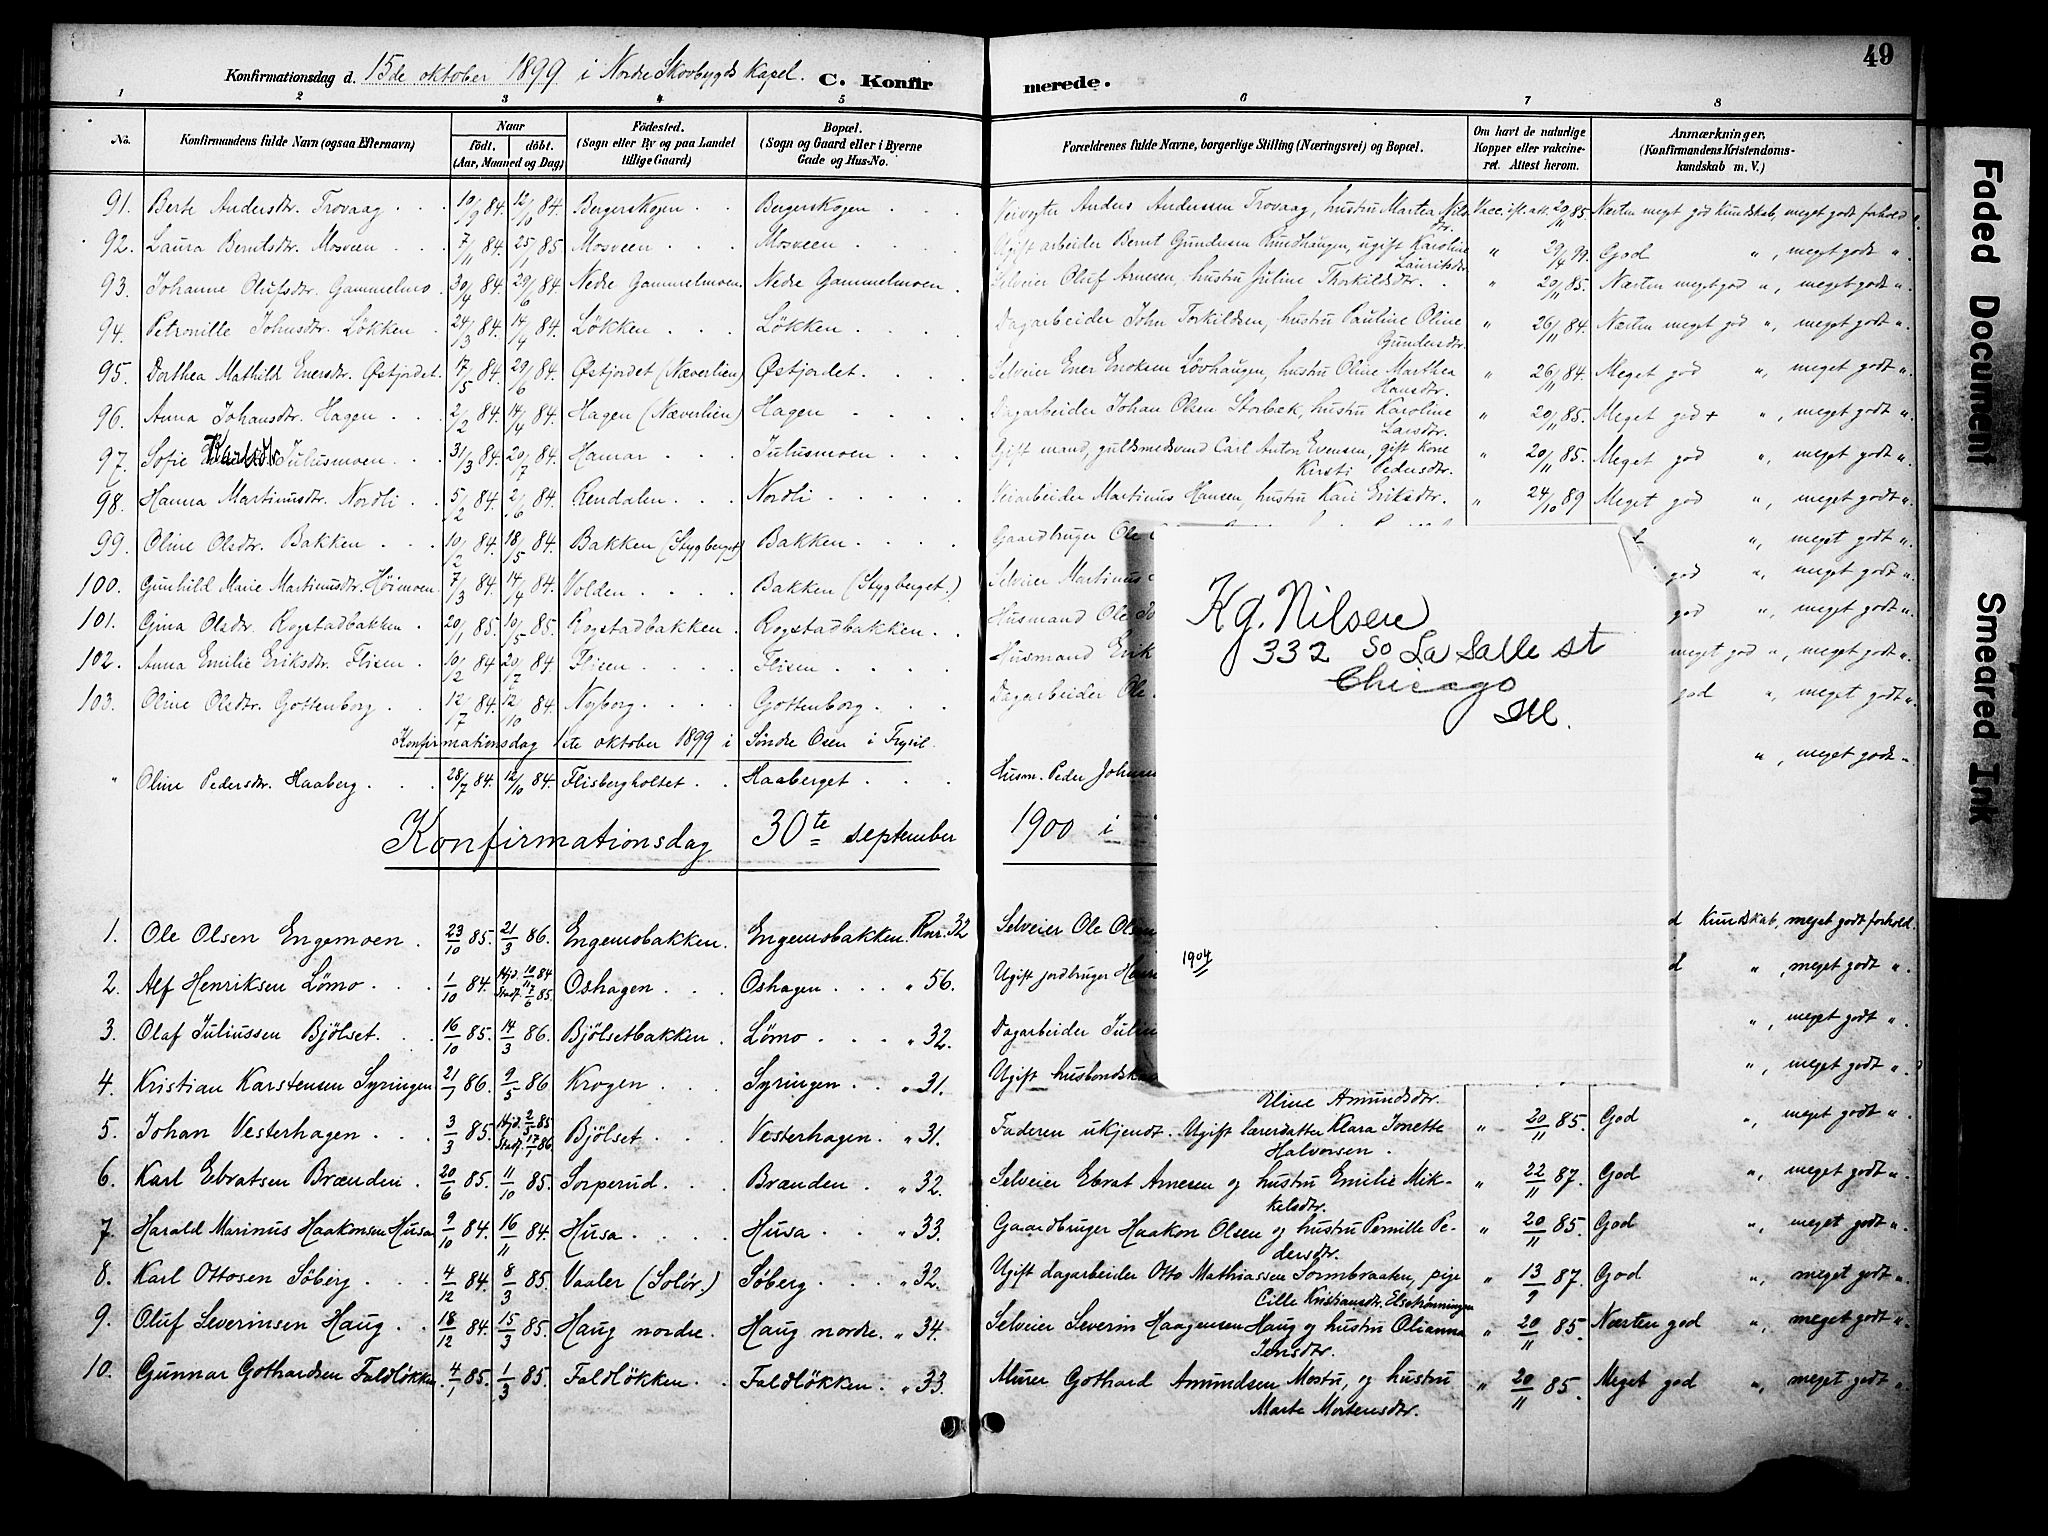 49
Konfirmationsdag d. 15de oktober 1899 i Nordre Skovbygds Kapel. C. Konfirmerede.
1 2 3 4 5 6 7 8
No. Konfirmandens fulde Navn (ogsaa Efternavn) Naar Födt. döbt. (Aar, Maaned og Dag) Födested. (Sogn eller By og paa Landet tillige Gaard) Bopæl. (Sogn og Gaard eller i Byerne Gade og Hus-No. Forældrenes fulde Navne, borgerlige Stilling (Næringsvei) og Bopæl. Om havt de naturlige Kopper eller vakcineret. Attest herom. Anmærkninger. (Konfirmandens Kristendomskundskab m. V.)
91. Berte Andersdtr. Trovaag 10/9 84. 12/10 84. Bergerskogen Bergerskogen Veivogter Anders Andersen Trovaag, hustru Martea Nilsdtr. Vacc. ifl. att. 20/11 85. Næsten meget god Kundskab, meget godt forhold
92. Laura Berntsdtr. Mosveen 7/11 84. 25/1 85 Mosveen Mosveen Ugift arbeider Bernt Gundersen Rundhaugen, ugift Karoline Lauritsdtr. " 29/4 99. God ", meget godt ".
93. Johanne Olufsdtr. Gammelmo 30/4 84. 29/6 84. Nedre Gammelmoen Nedre Gammelmoen Selveier Oluf Arnesen, hustru Juline Thorkildsdtr. " 20/11 85. Næsten meget god ", meget godt ".
94. Petronille Johnsdtr. Løkken 24/3 84. 14/4 84. Løkken Løkken Dagarbeider John Torkildsen, hustru Pauline Oline Gundersdtr. " 26/11 84. Næsten meget god ", meget godt ".
95. Dorthea Mathild Enersdtr. Østjordet 17/5 84. 29/6 84. Østjordet (Næverlien) Østjordet Selveier Ener Encksen Lövhaugen, hustru Oline Marthea Hansdtr. " 26/11 84. Meget god ", meget godt ".
96. Anna Johansdtr. Hagen 2/2 84. 14/4 84. Hagen (Næverlien) Hagen Dagarbeider Johan Olsen Storbæk, hustru Karoline Larsdtr. " 20/11 85. Meget god + ", meget godt ".
97. Sofie Karlsdtr. Julusmoen 31/3 84. 20/7 84. Hamar Julusmoen Gift mand, guldsmedsvend Carl Anton Evensen, gift Kone Kersti Pedersdtr. " 20/11 85. Meget god ", meget godt ".
98. Hanna Martinusdtr. Nordli 5/2 84. 2/6 84. Rendalen Nordli Veiarbeider Martinus Hansen, hustru Kari Eriksdtr. " 24/10 89 Meget god ", meget godt ".
99. Oline Olsdtr. Bakken 10/2 84. 18/5 84. Bakken (Stygberget) Bakken Gaardbruger Ole ", meget godt ".
100. Gunhild Marie Martinusdtr. Høimoen 7/3 84. 14/4 84. Volden Bakken (Stygberget.) Selveier Martinus god ", meget godt ".
101. Gina Olsdtr. Rogstadbakken 20/1 85. 10/5 85. Rogstadbakken Rogstadbakken Husmand Ole god ", meget godt ".
102. Anna Emilie Eriksdtr. Flisen 10/12 84 20/7 84 Flisen Flisen Husmand Erik meget god ", meget godt ".
103. Oline Olsdtr. Gottenborg 12/17 84. 12/10 84. Nyborg Gottenborg Dagarbeider Ole god ", meget godt ".
Konfirmationsdag 1ste oktober 1899 i Søndre Osen i Trysil.
" Oline Pedersdtr. Haaberg 28/7 84. 12/10 84. Flisbergholtet Haaberget Husm. Peder Johnsen ", meget godt "
Konfirmationsdag 30te september 1900 i
1. Ole Olsen Engemoen 23/10 85. 21/3 86. Engemobakken. Engemobakken. Rnr. 32 Selveier Ole Olsen d Kundskab, meget godt forhold.
2. Alf Henriksen Lömo 1/10 84. Hjd. 10/11 84 Stadf. 17/6 85. Oshagen Oshagen " 56. Ugift jordbruger d ", meget godt ".
3. Olaf Juliussen Bjölset 16/10 85. 14/3 86. Bjölsetbakken Lömo " 32. Dagarbeider ", meget godt ".
4. Kristian Karstensen Syringen 21/1 86. 9/5 86 Krogen Syringen " 31. Ugift husbondskar Oline Amundsdtr. ", meget godt ".
5. Johan Vesterhagen 3/3 85. Hjd. 2/5 85 Stadf. 17/1 86. Bjölset Vesterhagen " 31. Faderen ukjendt. Ugift lærerdatter Klara Jonette Halvorsen. " 20/11 85. God ", meget godt ".
6. Karl Ebratsen Brænden 20/6 85. 11/10 85. Sorperud Brænden " 32. Selveier Ebrat Arnesen og hustru Emilie Mikkelsdtr. " 22/11 87. God ", meget godt ".
7. Harald Marinus Haakonsen Husa 9/10 84. 16/11 84. Husa Husa " 33. Gaardbruger Haakon Olsen og hustru Pernille Pedersdtr. " 20/11 85. God ", meget godt ".
8. Karl Ottosen Söberg 4/12 84. 8/3 85. Vaaler (Solör.) Söberg " 32. Ugift dagarbeider Otto Mathiassen Sormbraaten, pige Cille Kristiansdtr. Elsetrønningen " 13/9 87. God ", meget godt ".
9. Oluf Severinsen Haug 18/12 84. 15/3 85. Haug nordre. Haug nordre. " 34. Selveier Severin Haagensen Haug og hustru Olianna Jensdtr. " 20/11 85. Næsten god ", meget godt ".
10. Gunnar Gothardsen Faldlökken 4/1 85. 1/3 85. Faldlökken. Faldlökken. " 33. Murer Gothard Amundsen Mostu, og hustru Marte Mortensdtr. " 20/11 85. Meget god ", meget godt ".
Kg. Nilsen
332 So La Salle st
Chicago
Ill.
1904
Faded Document
Smeared Ink